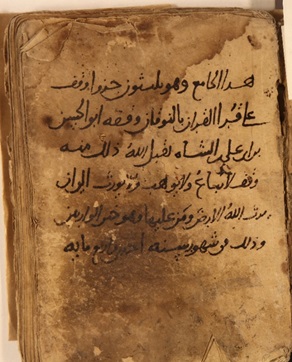 هدا الجامع وهو ثلثون جزوا وقف
على قرا القران بالنوقان وقفه ابو الحسن
بن على الشاه تقبل الله ذلك منه
وقف لا تباع ولا توهب ولا تورث الى ان
يرث الله الارض ومن عليها وهو خير الوارثين
وذلك فى شهور سنه احدى واربع مايه